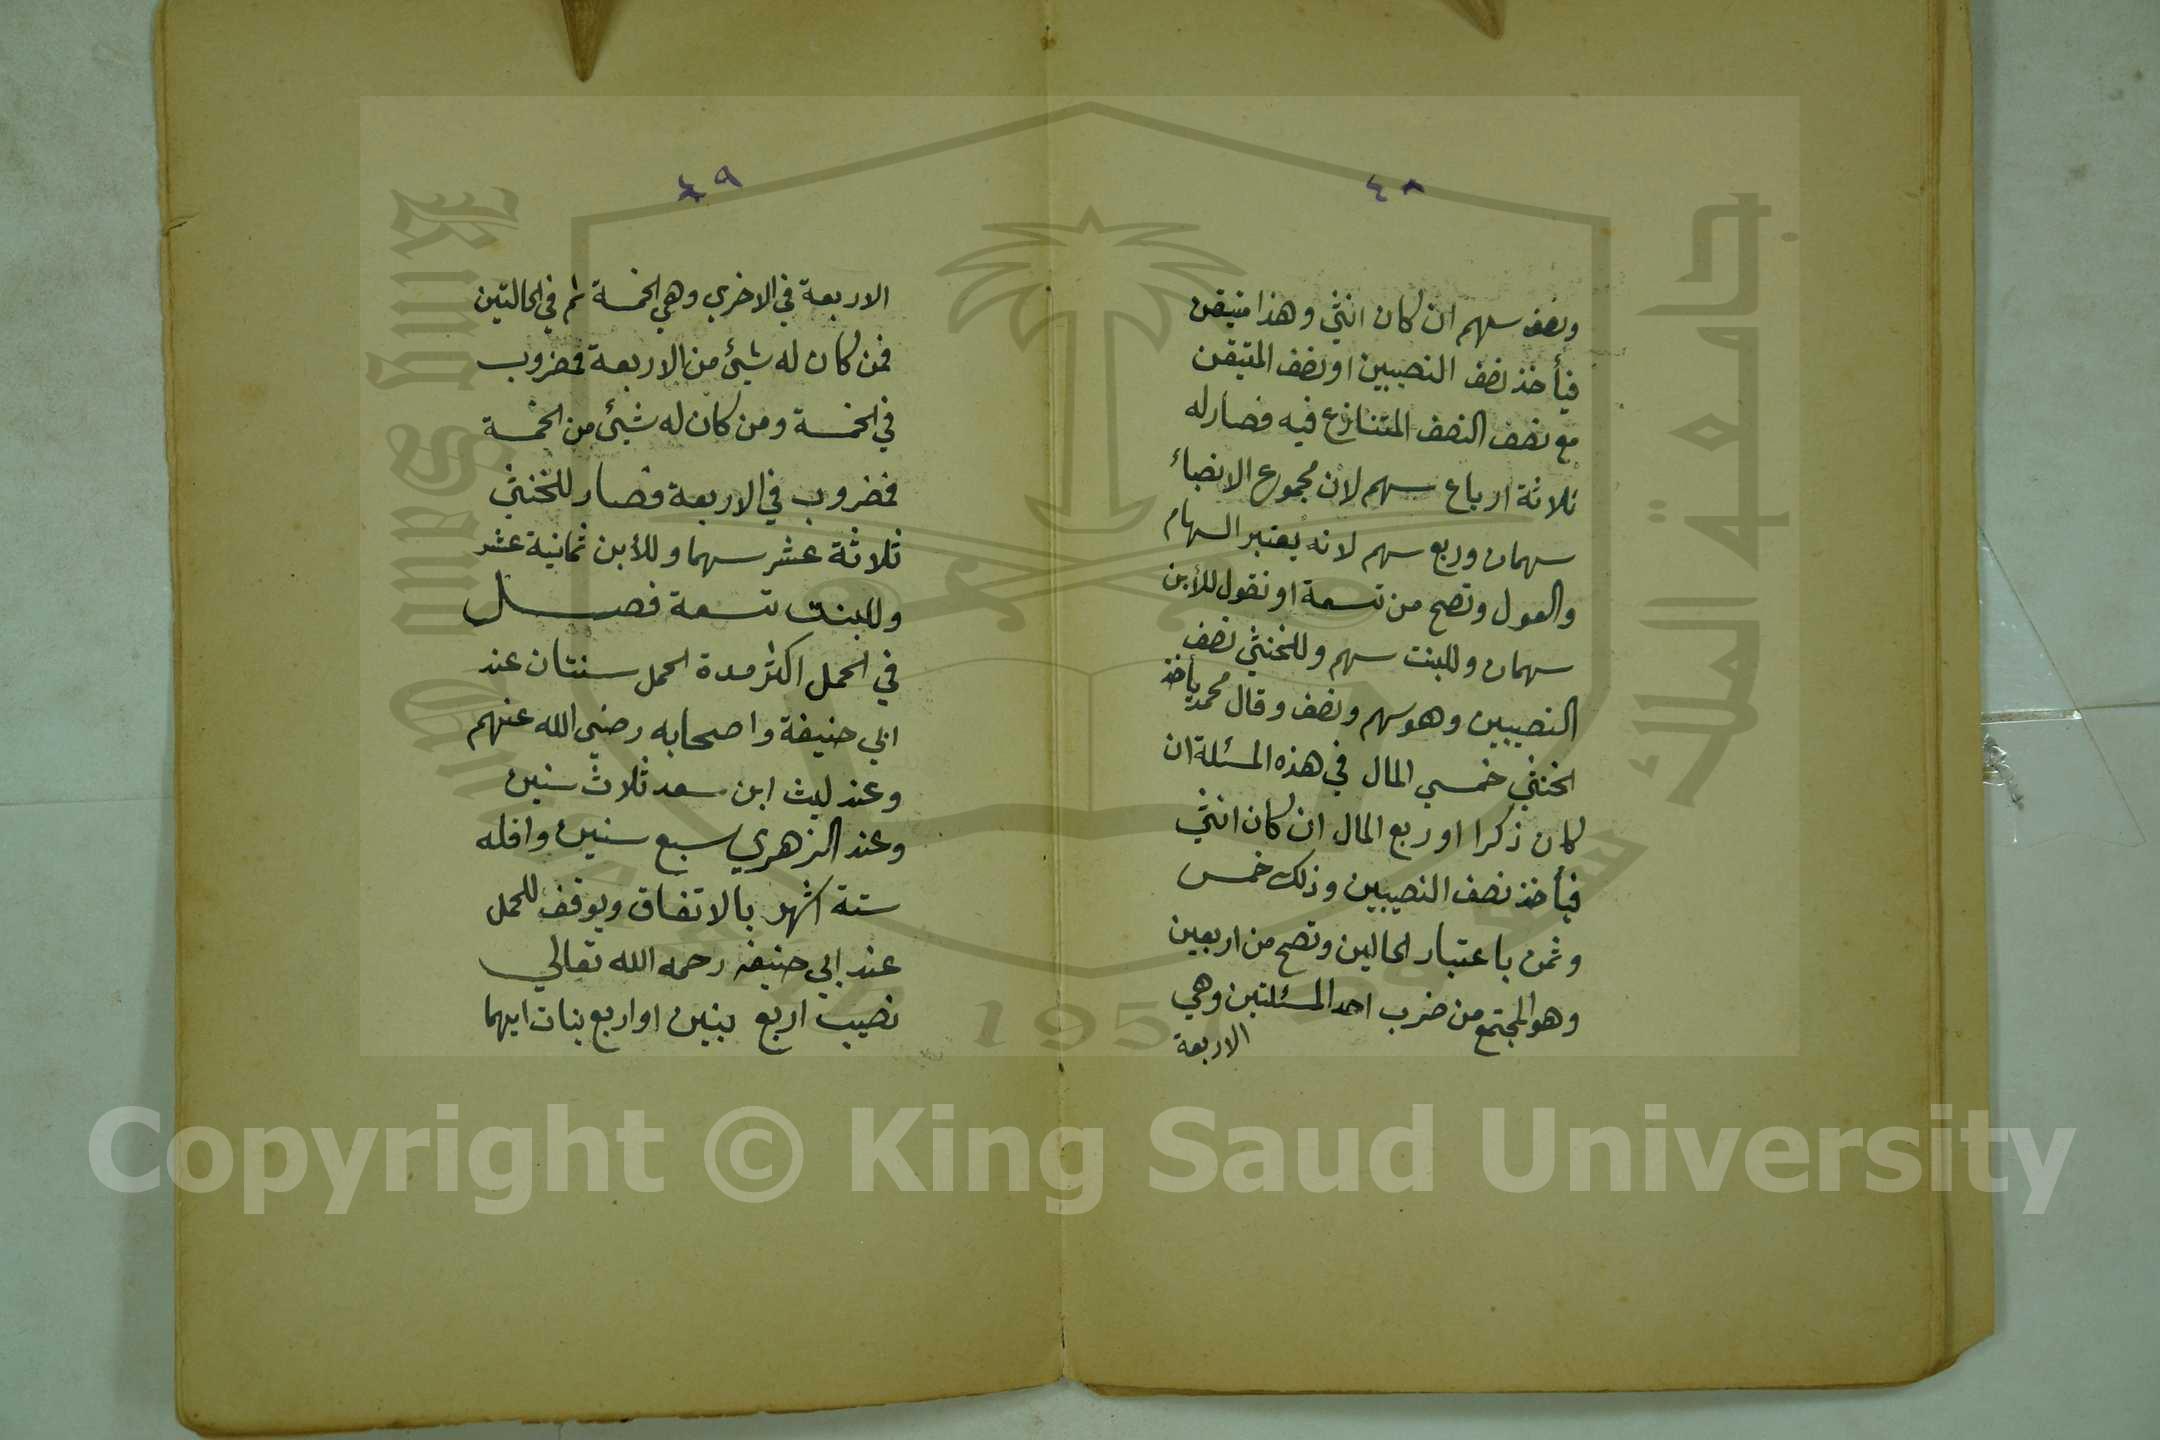 ٤٨
ونصف سهم ان كان انثي وهذا متيقن
فيأخذ نصف النصيبين او نصف المتيقن
مع نصف النصف المتنازع فيه فصار له
ثلاثة ارباع سهم لان مجموع الانصباء
سهمان وربع سهم لانه يعتبر السهام
والعول وتصح من تسعة او نقول للأبن
سهمان وللبنت سهم وللخنثي نصف
النصيبين وهو سهم ونصف وقال محمد يأخذ
الخنثي خمسي المال في هذه المسئلة ان
كان ذكرا او ربع المال ان كان انثي
فيأخذ نصف النصيبين وذلك خمس
وثمن باعتبار الحالين وتصح من اربعين
وهو المجتمع من ضرب احد المسئلتين وهي
الاربعة
٤٩
الاربعة في الاخري وهي الخمسة ثم في الحالتين
فمن كان له شيئ من الاربعة فمضروب
في الخمسة ومن كان له شيئ من الخمسة
فمضروب في الاربعة فصار للخنثي
ثلاثة عشر سهما وللأبن ثمانية عشر
وللبنت تسعة فصل
في الحمل اكثر مدة الحمل سنتان عند
ابي حنيفة واصحابه رضي الله عنهم
وعند ليث ابن سعد ثلاث سنين
وعند الزهري سبع سنين واقله
ستة اشهر بالاتفاق ويوقف للحمل
عند ابي حنيفه رحمه الله تعالي
نصيب اربع بنين او اربع بنات ايهما
جامعة الملك سعود
King Saud University
1957
Copyright © King Saud University